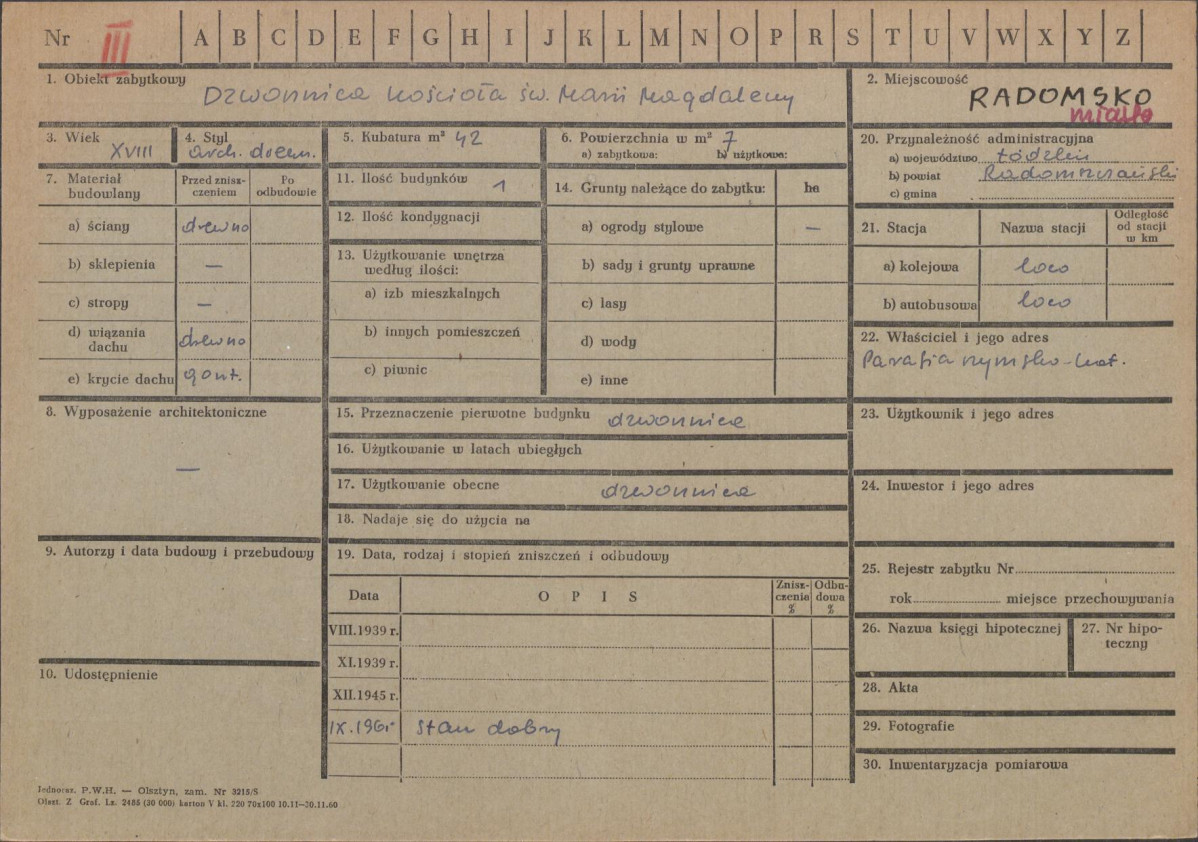 Nr III A B C D E F G H I J K L M N O P R S T U V W X Y Z
1. Obiekt zabytkowy
Dzwonnica kościoła św. Marii Magdaleny
2. Miejscowość
RADOMSKO
miasto
3. Wiek
XVIII
4. Styl
arch. drewn.
5. Kubatura m³ 42
6. Powierzchnia w m² 7
a) zabytkowa: b) użytkowa:
7. Materiał budowlany
Przed zniszczeniem
Po odbudowie
a) ściany drewno
b) sklepienia —
c) stropy —
d) wiązania dachu drewno
e) krycie dachu gont.
8. Wyposażenie architektoniczne
—
9. Autorzy i data budowy i przebudowy
10. Udostępnienie
11. Ilość budynków 1
12. Ilość kondygnacji
13. Użytkowanie wnętrza
według ilości:
a) izb mieszkalnych
b) innych pomieszczeń
c) piwnic
14. Grunty należące do zabytku: ha
a) ogrody stylowe —
b) sady i grunty uprawne
c) lasy
d) wody
e) inne
15. Przeznaczenie pierwotne budynku dzwonnica
16. Użytkowanie w latach ubiegłych
17. Użytkowanie obecne dzwonnica
18. Nadaje się do użycia na
19. Data, rodzaj i stopień zniszczeń i odbudowy
Data OPIS Znisz-
czenia
% Odbu-
dowa
%
VIII.1939 r.
XI.1939 r.
XII.1945 r.
stan dobry
20. Przynależność administracyjna
a) województwo Łódzkie
b) powiat Radomszczański
c) gmina
21. Stacja Nazwa stacji Odległość
od stacji
w km
a) kolejowa loco
b) autobusowa loco
22. Właściciel i jego adres
Parafia rzymsko-kat.
23. Użytkownik i jego adres
24. Inwestor i jego adres
25. Rejestr zabytku Nr
rok miejsce przechowywania
26. Nazwa księgi hipotecznej
27. Nr hipo-
teczny
28. Akta
29. Fotografie
30. Inwentaryzacja pomiarowa
Jednocz. P.W.H. — Olsztyn, zam. Nr 3215/S
Olszt. Z Graf. Lz. 2485 (30 000) karton V kl. 220 70x100 10.11—30.11.60